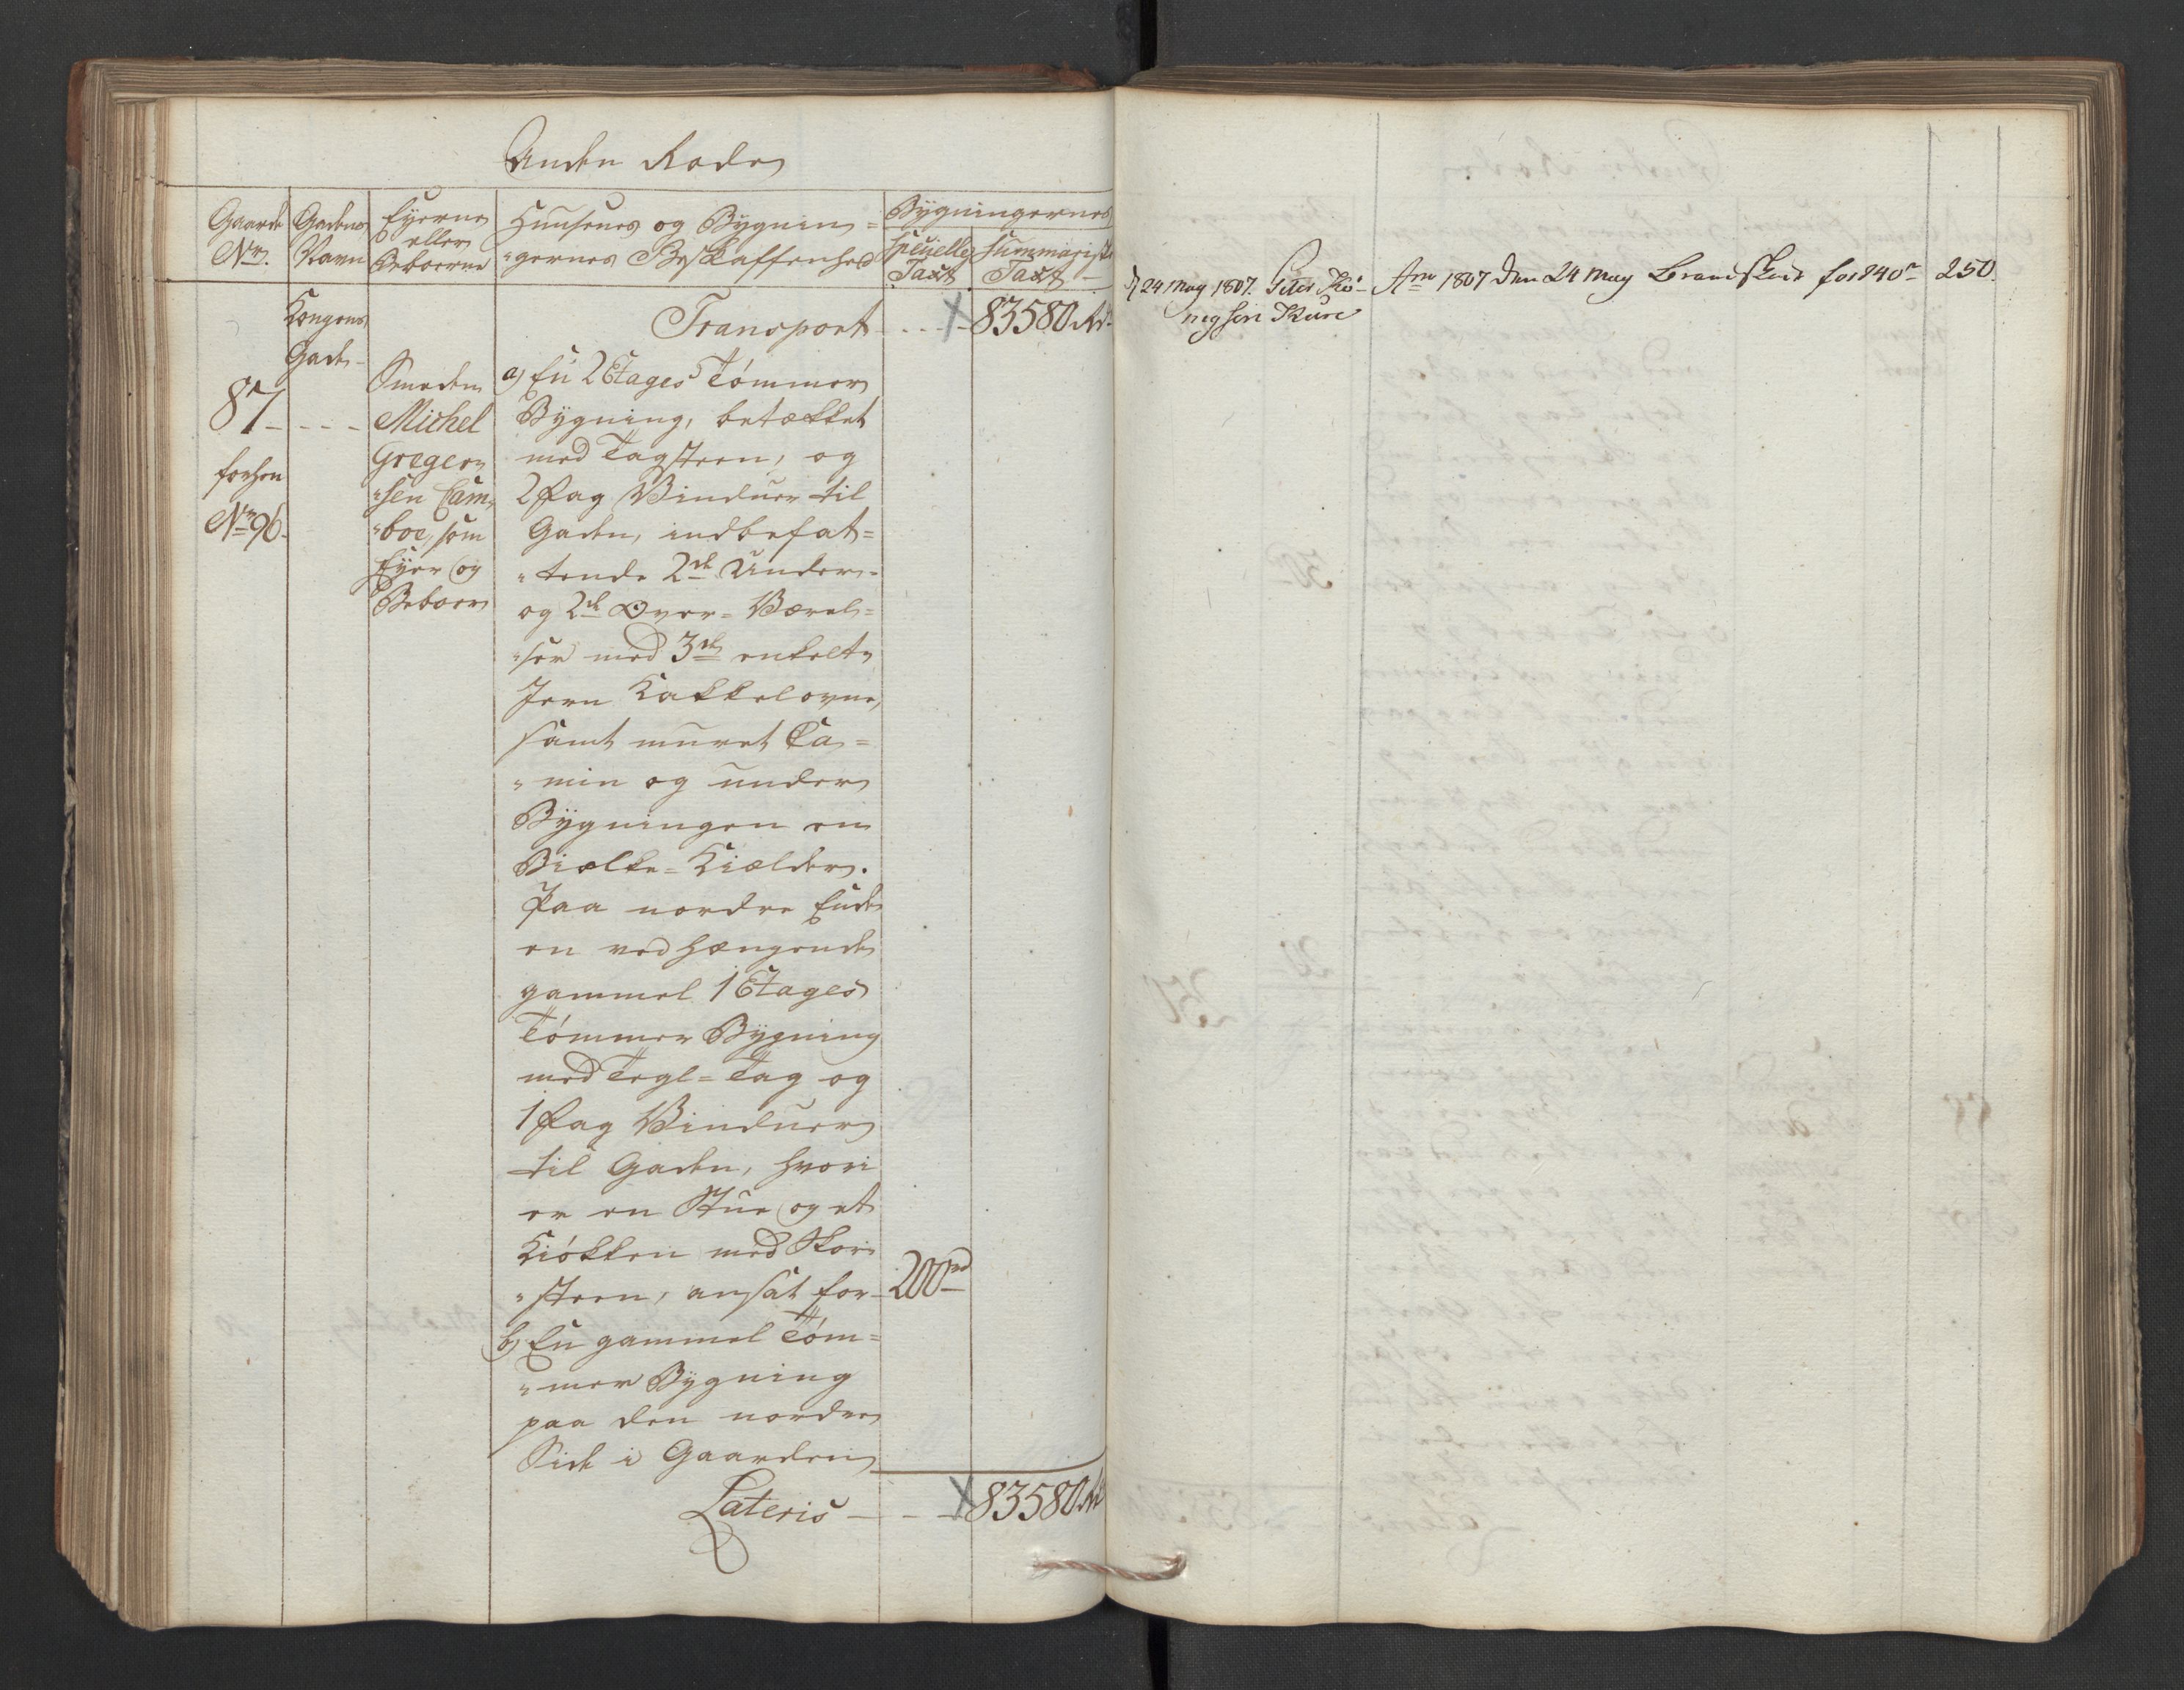 Anden Rode
Gaarde
No.
Gadens
Navn
Eyerne
eller
Beboerne
Huusenes og Bygnin=
"gernes Beskaffenhed
Bygningernes
speuelle
Taxt
summariske
Taxt
Transport - - - 83580 Rd.
Kongens
Gade
87 - - - -
forhen
No 96.
Smeden
Michel
Greger=
"sen Cam=
"boe, som
Eyer og
Beboer
a) En 2 Etages Tömmer
Bygning, betækket
med Tagsteen, og
2 Fag Vinduer til
Gaden, indbefat=
"tende 2de Under=
og 2de Over=Værel=
"ser med 3de enkelte
Jern Kakkelovne,
samt muret Ca=
"min og under
Bygningen en
Bielke=Kiælder.
Paa nordre Ende
en vedhængende
gammel 1 Etages
Tömmer Bygning
med Tegl=Tag og
1 Fag Vinduer
til Gaden, hvori
er en Stue og et
Kiökken med Skor=
"steen, ansat for - 200rd
b) En gammel Töm=
"mer Bygning
paa den nordre
Side i Gaarden
Lateris - - - 83580 Rd
24 May 1807. Peter
Ao 1807 den 24 May for 840r 250.